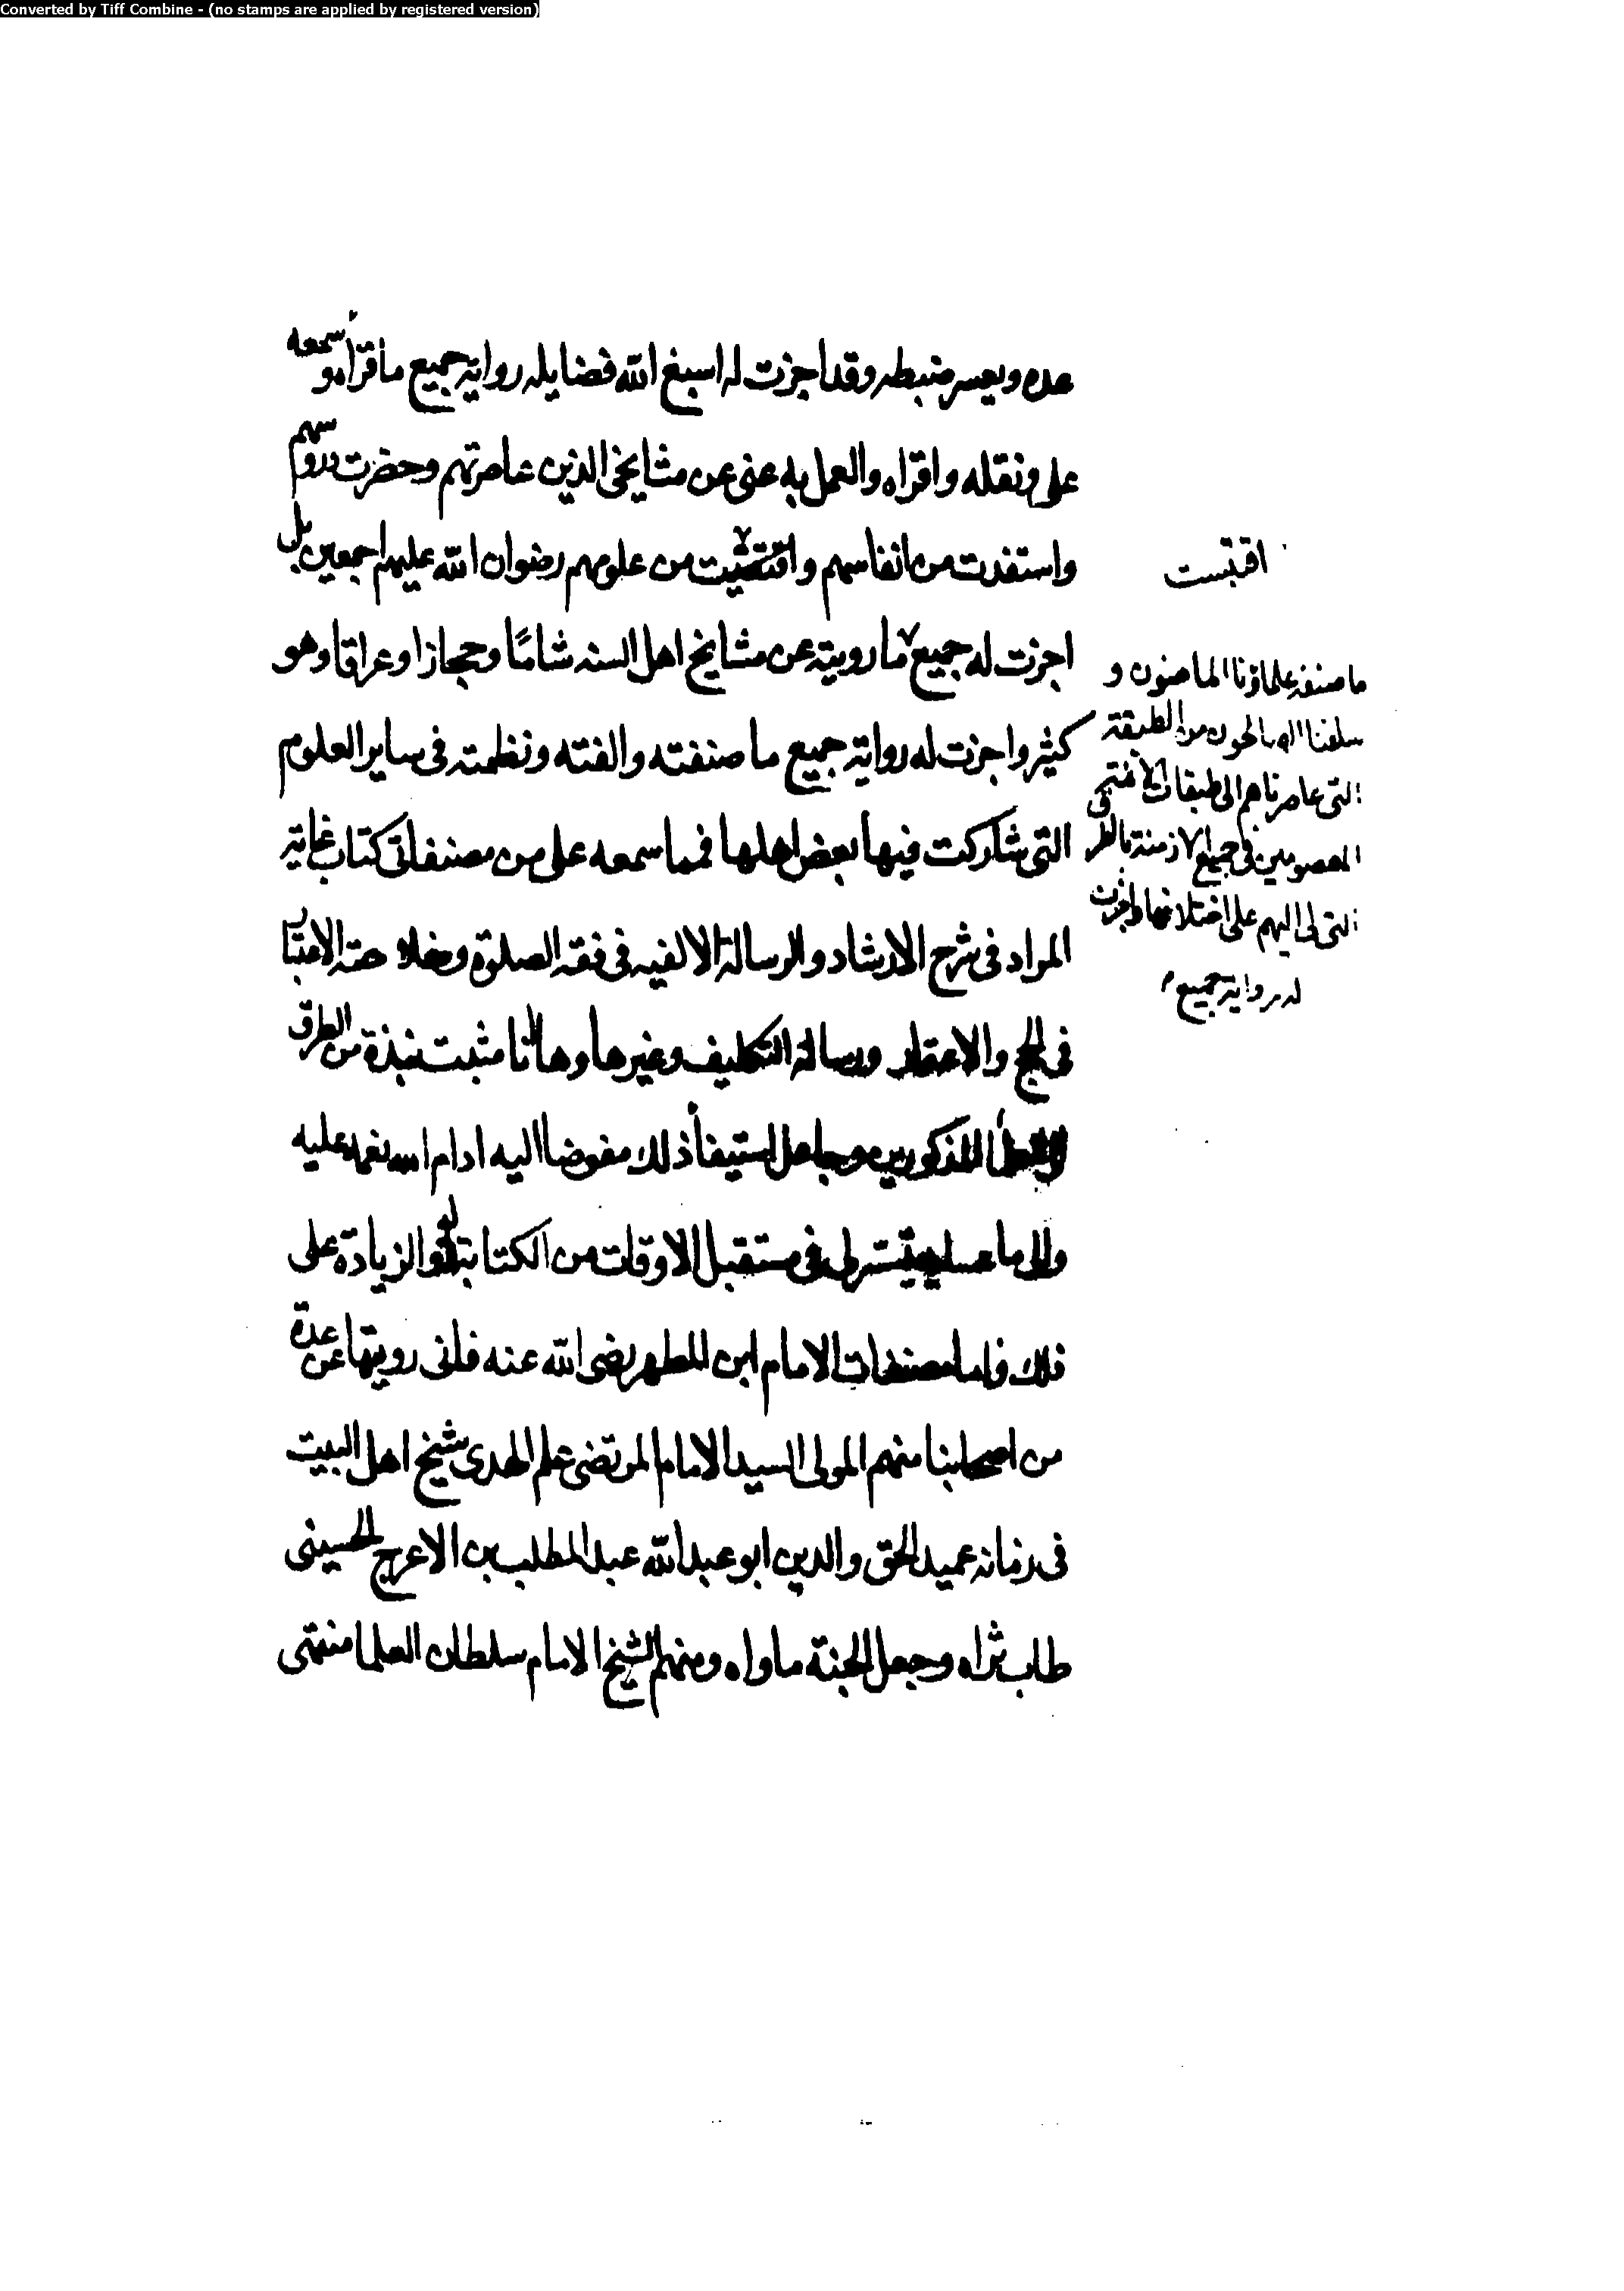 Converted by Tiff Combine - (no stamps are applied by registered version)
عده ويعسر ضبطه وقد اجزت له اسبغ الله فضايله رواية جميع ما قراه وسمعه
على ونقله واقراه والعمل به عنى عن مشايخى الذين عاصرتهم وحضرت دروسهم
واستفدت من انفاسهم و من علومهم رضوان الله عليهم اجمعين بل
اقتبست
اجزت له جميع ما رويته عن مشايخ اهل السنه شامًا وحجازا وعراقا وهو
كثير واجزت له رواية جميع ما صنفته والفته ونظمته فى ساير العلوم
التى شاركت فيها بعض اهلها فمما سمعه على من مصنفاتى كتاب غاية
المراد فى شرح الارشاد والرسالة الالفيه فى فقه الصلوة وخلاصة الاعتبار
فى الحج والاعتمار ورسالة التكليف وغيرها وها انا مثبت نبذة من الطرق
المذكورين وجاعل استيفأ ذلك مفوضا اليه ادام الله نعمه عليه
والى ما عساه يتيسر لى فى مستقبل الاوقات من الكتابة له والزيادة على
ذلك فاما مصنفات الامام ابن المطهر رضى الله عنه فانى رويتها عن عدة
من اصحابنا منهم المولى السيد الامام المرتضى علم الهدى شيخ اهل البيت
فى زمانه عميد الحق والدين ابو عبد الله عبد المطلب بن الاعرج الحسينى
طاب ثراه وجعل الجنة ماواه ومنهم الشيخ الامام سلطان العلما منتهى
ما صنفه علماؤنا الماضون و
سلفنا الصالحون من الطبقة
التى عاصرناهم الى طبقات الائمة
المعصومين فى جميع الازمنة بالطرق
التى لى اليهم على اختلافها واجزت
له رواية جميع